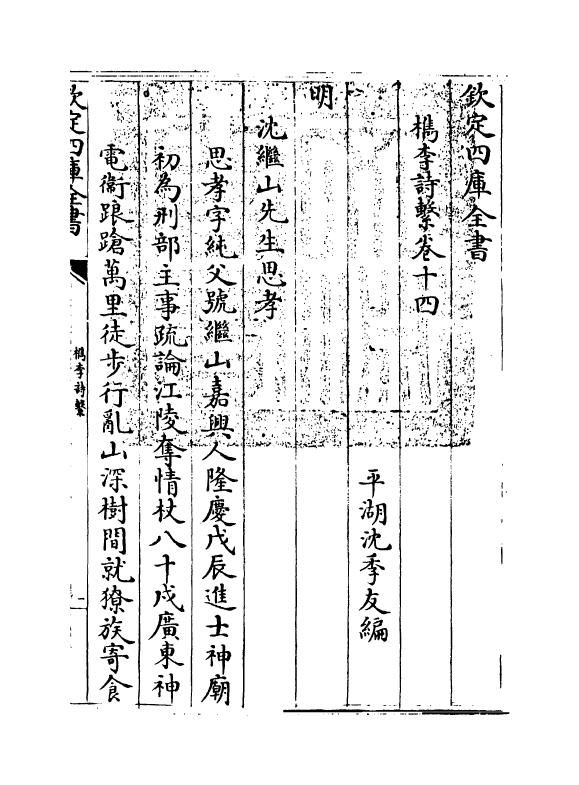 欽定四庫全書
檇李詩繫卷十四
平湖沈季友編
明
沈繼山先生思孝
思孝字純父號繼山嘉興人隆慶戊辰進士神廟
初為刑部主事疏論江陵奪情杖八十戍廣東神
電衛踉蹌萬里徒步行亂山深樹間就獠族寄食
欽定四庫全書
檇李詩繫